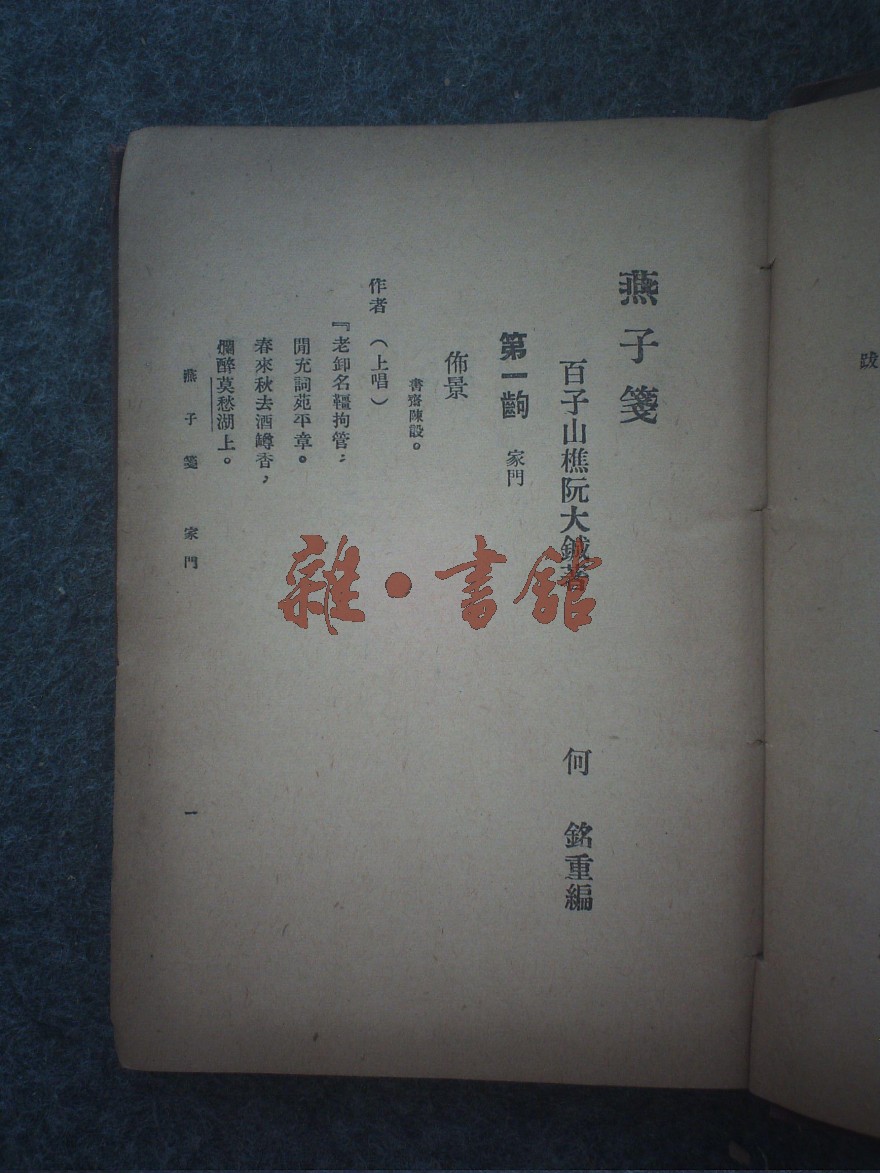 跋
燕子箋
百子山樵阮大鋮著 何銘重編
第一齣 家門
佈景
書齋陳設。
作者 (上唱)
『老卸名韁拘管;
閒充詞苑平章。
春來秋去酒罇香,
爛醉莫愁湖上。
燕子箋 家門 一
雜·書館